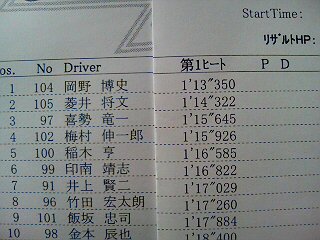 StartTime:
リザルトHP:
os. No Driver 第1ヒート P D
1 104 岡野 博史 1'13"350
2 105 菱井 将文 1'14"322
3 97 喜勢 竜一 1'15"645
4 102 梅村 伸一郎 1'15"926
5 100 稲木 亨 1'16"585
6 99 印南 靖志 1'16"822
7 91 井上 賢二 1'17"029
8 96 竹田 宏太朗 1'17"260
9 101 飯坂 忠司 1'17"884
10 98 金本 辰也